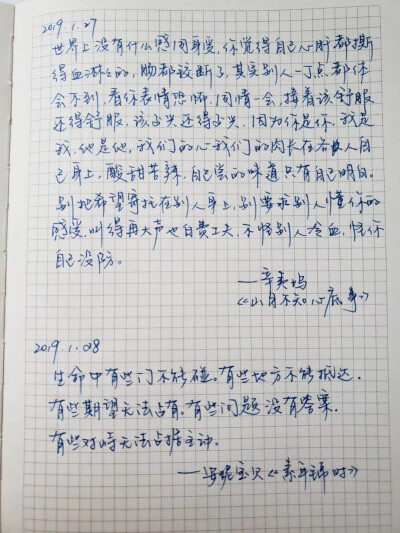 2019.1.27
世界上没有什么感同身受,你觉得自己心肝都撕
得血淋淋的,肠都绞断了,其实别人一丁点都体
会不到,看你表情恐怖,同情一会,接着该舒服
还得舒服,该高兴还得高兴,因为你是你,我是
我,他是他,我们的心我们的肉长在各人自
己身上,酸甜苦辣,自己尝的味道只有自己明白。
别把希望寄托在别人身上,别要求别人懂你的
感受,叫得再大声也白费工夫,不怪别人冷血,怪你
自己没防。
——辛夷坞
《山月不知心底事》
2019.1.28
生命中有些门不能碰。有些地方不能抵达,
有些期望无法占有。有些问题没有答案,
有些对峙无法占据主动。
——安妮宝贝《素年锦时》